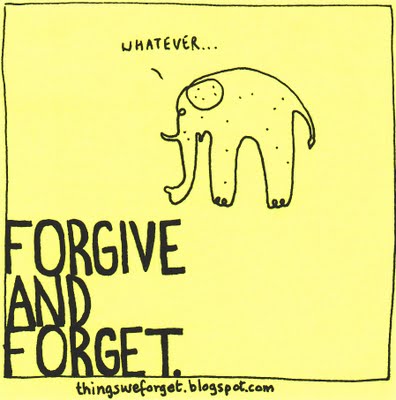 WHATEVER...
FORGIVE
AND
FORGET.
thingsweforget.blogspot.com